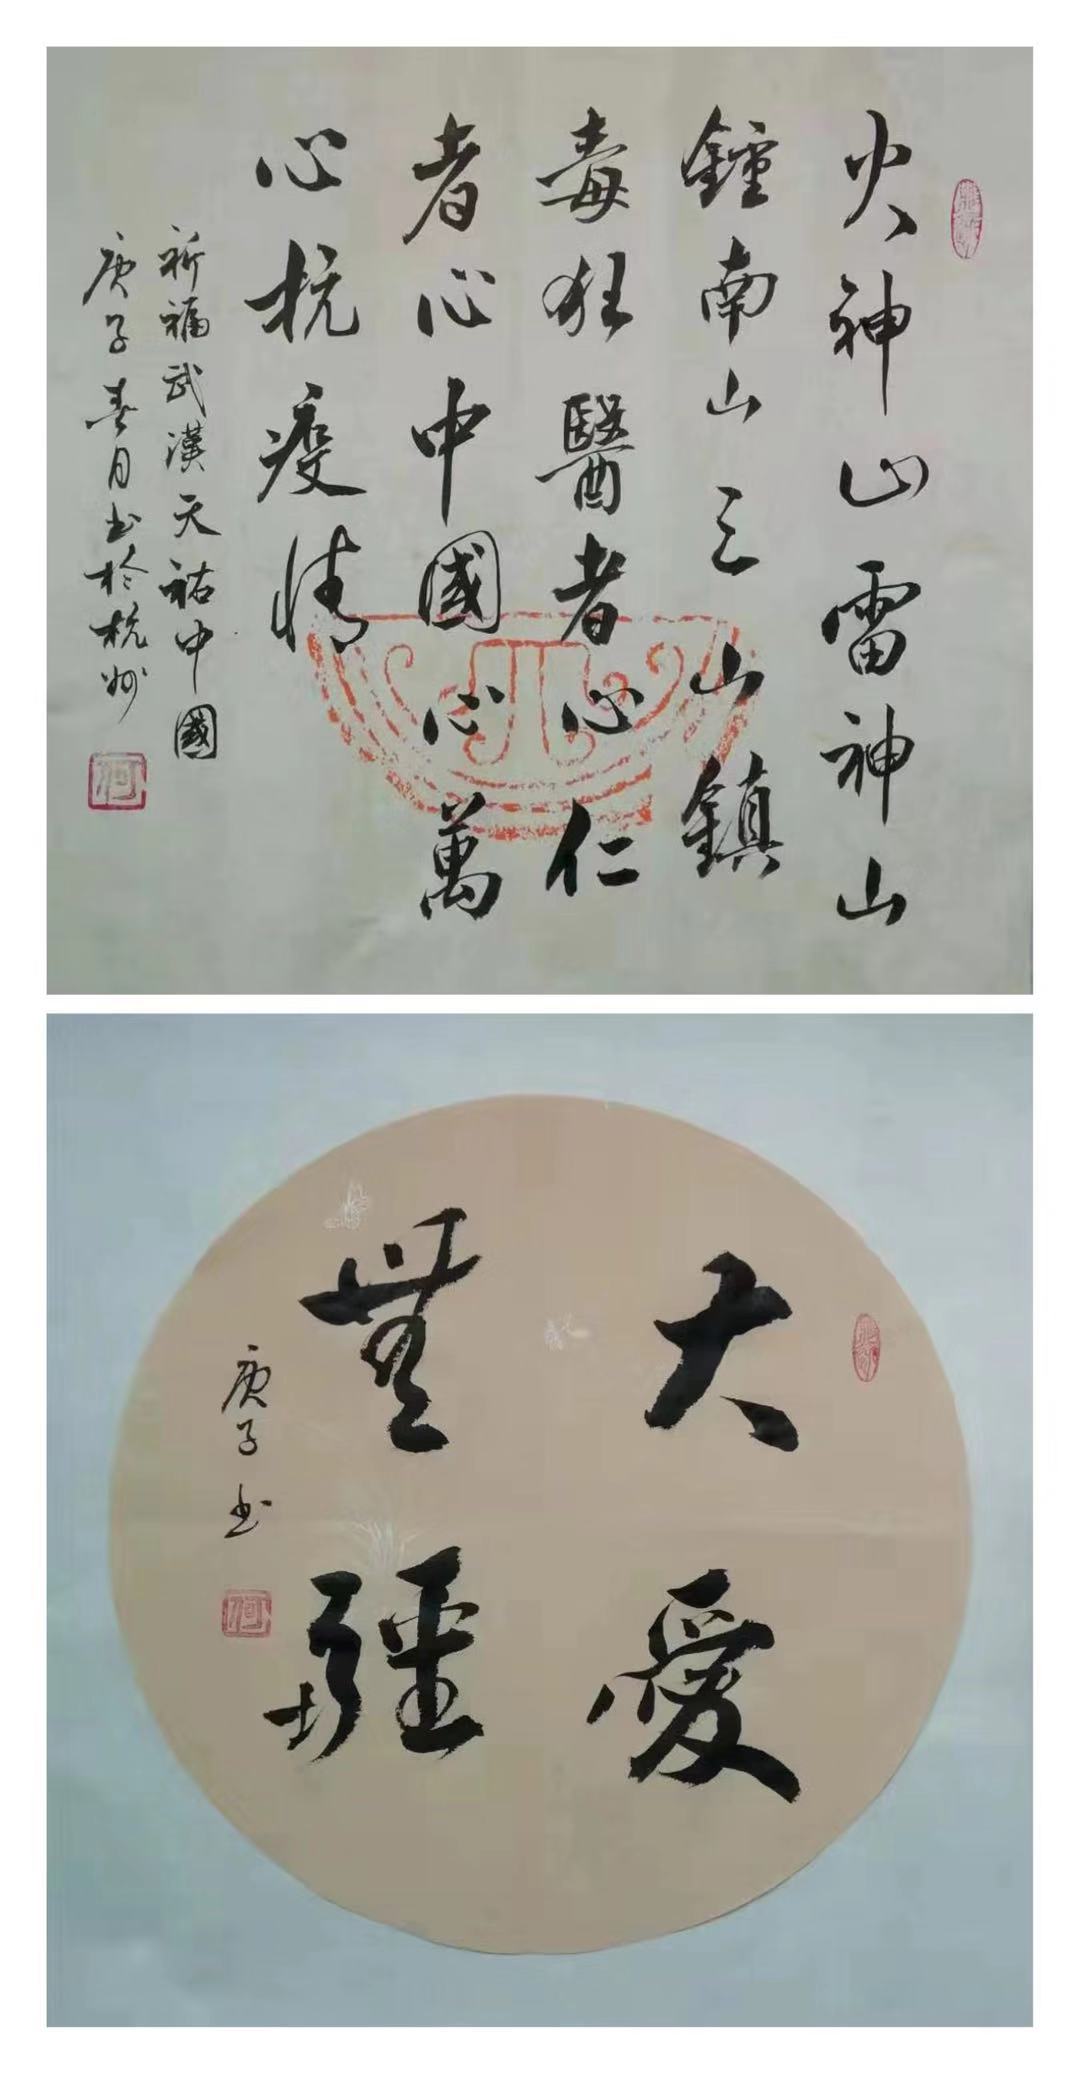 火神山雷神山
鍾南山三山鎮
毒狂醫者心仁
者心中國心萬
心抗疫情
祈福武漢天祐中國
庚子春月书於杭州
何
大愛
無疆
庚子书
何